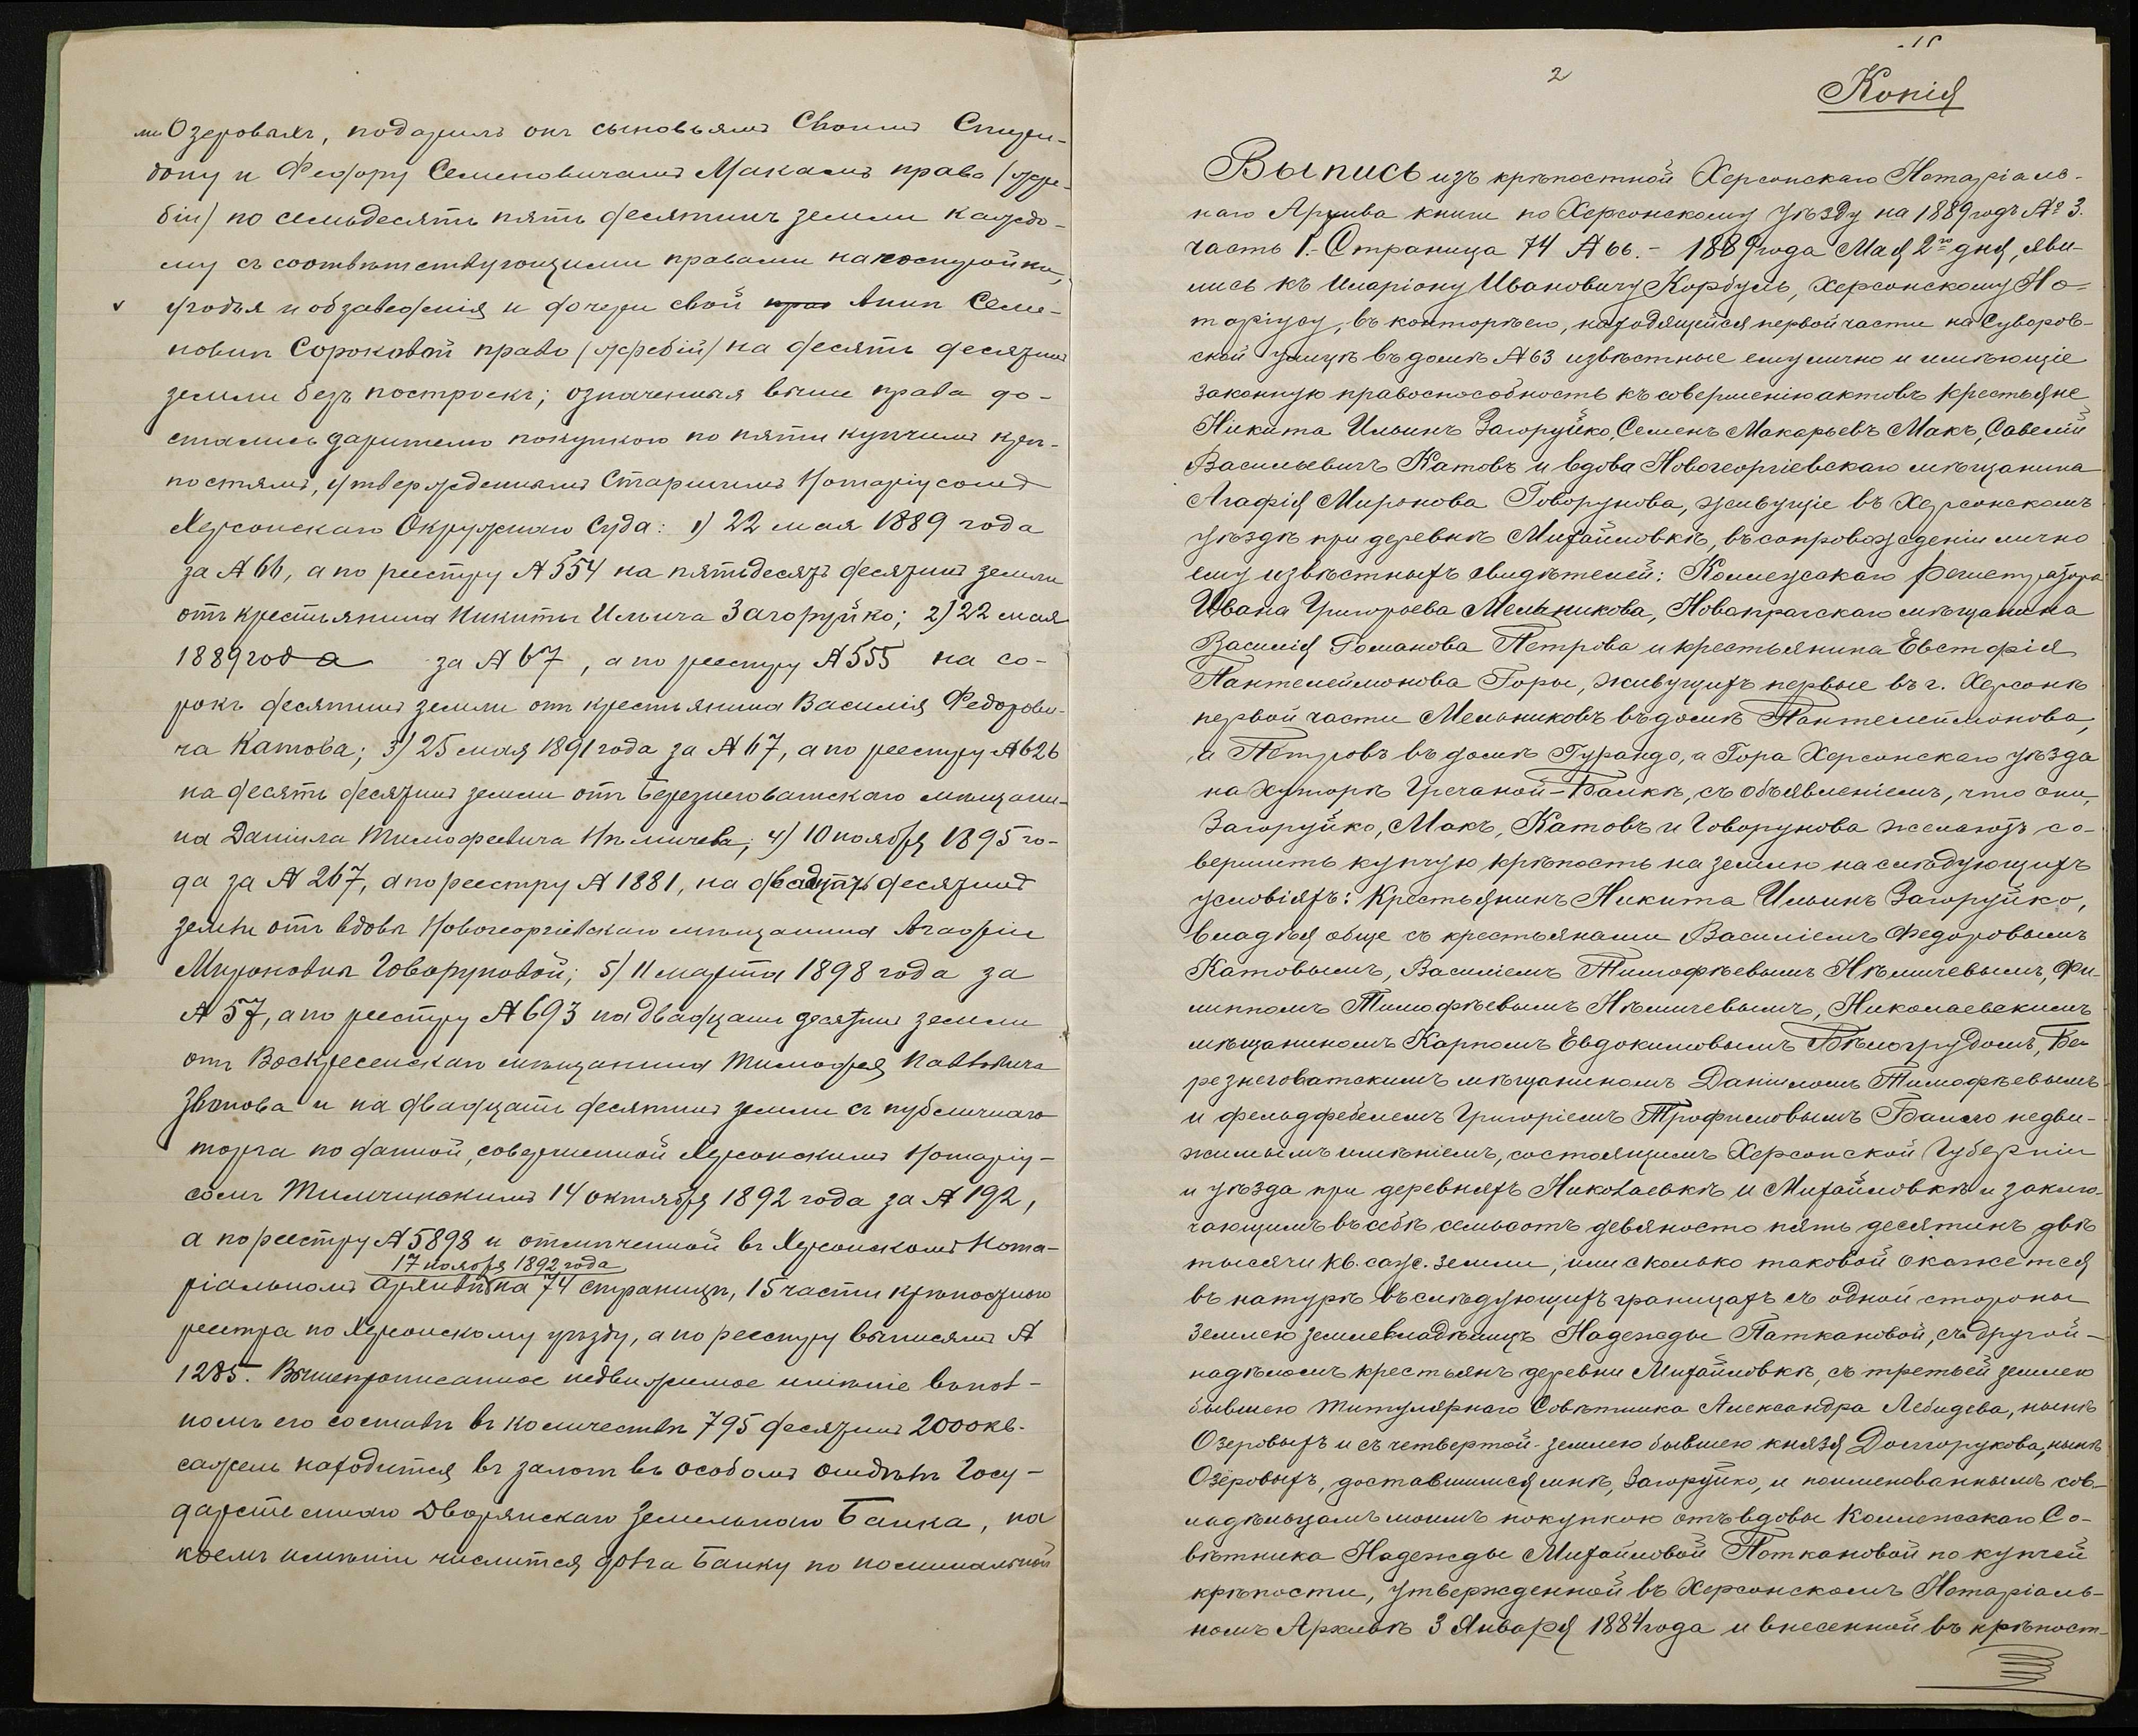 ми Озеровыхъ, подарилъ онъ сыновьямъ своимъ Спири-
дону и Феодору Семеновичамъ Макамъ право (жре-
бiи) по семьдесятъ пять десятинъ земли каждо-
му съ соотвѣтствующими правами на постройки,
угодья и обзаведенiя и дочери свой пра Аннѣ Семе-
новнѣ Сороковой право (жребiй) на десять десятинъ
земли безъ построекъ; означенныя выше права до-
стались дарителю покупкою по пяти купчимъ крѣ-
постямъ, утвержденнымъ Старшимъ Нотарiусомъ
Херсонскаго Окружнаго Суда: 1) 22 мая 1889 года
за № 66, а по реестру № 554 на пятьдесятъ десятинъ земли
отъ крестьянина Никиты Ильича Загоруйко; 2) 22 мая
1889 года за № 67, а по реестру № 555 на со-
рокъ десятинъ земли отъ крестьянина Василiя Федорови-
ча Катова; 3) 25 мая 1891 года за № 67, а по реестру № 626
на десять десятинъ земли отъ Березнеговатскаго мѣщани-
на Данiила Тимофеевича Нѣмичева; 4) 10 ноября 1895 го-
да за № 267, а по реестру № 1881, на двадцать десятинъ
земли отъ вдовы Новогеоргiевскаго мѣщанина Агафiи
Мироновны Говоруновой; 5) 11 марта 1898 года за
№ 57, а по реестру № 693 на двадцать десятинъ земли
отъ Воскресенскаго мѣщанина Тимофея Павловича
Звонова и на двадцать десятинъ земли съ публичнаго
торга по данной, совершенной Херсонскимъ Нотарiу-
сомъ Тимчинскимъ 14 октября 1892 года за № 192,
а по реестру № 5898 и отмѣченной въ Херсонскомъ Нота-
17 ноября 1892 года
рiальномъ Архивѣ на 74 страницѣ, 15 части крѣпостного
реестра по Херсонскому уѣзду, а по реестру выписямъ №
1285. Вышеописанное недвижимое имѣнiе въ пол-
номъ его составѣ въ количествѣ 795 десятинъ 2000 кв.
сажень находится въ залогѣ въ особомъ отдѣлѣ Госу-
дарственнаго Дворянскаго Земельнаго Банка, на
коемъ имѣнiи числится долга Банку по номинальной
2
Копiя
Выпись изъ крѣпостной Херсонскаго Нотарiаль-
наго Архива книги по Херсонскому уѣзду на 1889 годъ № 3.
часть 1. Страница 74 № 66. - 1889 года Мая 2го дня, яви-
лись къ Иларiону Ивановичу Корбуль, Херсонскому Но-
тарiусу, въ контору его, находящейся первой части на Суворов-
ской улицѣ въ домѣ № 63 извѣстные ему лично и имѣющiе
законную правоспособность къ совершенiю актовъ крестьяне
Никита Ильинъ Загоруйко, Семенъ Макарьевъ Макъ, Савелiй
Васильевичъ Катовъ и вдова Новогеоргiевскаго мѣщанина
Агафiя Миронова Говорунова, живущiе въ Херсонскомъ
уѣздѣ при деревнѣ Михайловкѣ, въ сопровожденiи лично
ему извѣстныхъ свидѣтелей: Коллежскаго Регистратора
Ивана Григорьева Мельникова, Новопрагскаго мѣщанина
Василiя Романова Петрова и крестьянина Евстафiя
Пантелеймонова Горы, живущихъ первые въ г. Херсонѣ
первой части Мельниковъ въ домѣ Пантелеймонова,
а Петровъ въ домѣ Гурандо, а Гора Херсонскаго уѣзда
на хуторѣ Гречаной-Балкѣ, съ объявленiемъ, что они,
Загоруйко, Макъ, Катовъ и Говорунова желаютъ со-
вершить купчую крѣпость на землю на слѣдующихъ
условiяхъ: Крестьянинъ Никита Ильинъ Загоруйко,
владѣя обще съ крестьянами Василiемъ Федоровымъ
Катовымъ, Василiемъ Тимофѣевымъ Нѣмичевымъ, Фи-
липпомъ Тимофѣевымъ Нѣмичевымъ, Николаевскимъ
мѣщаниномъ Карпомъ Евдокимовымъ Бѣлогрудомъ, Бе-
резнеговатскимъ мѣщаниномъ Данiиломъ Тимофѣевымъ
и фельдфебелемъ Григорiемъ Трофимовымъ Балло недви-
жимымъ имѣнiемъ, состоящимъ Херсонской Губернiи
и уѣзда при деревняхъ Николаевкѣ и Михайловкѣ и заклю-
чающимъ въ себѣ семьсотъ девяносто пять десятинъ двѣ
тысячи кв. саж. земли, или сколько таковой окажется
въ натурѣ въ слѣдующихъ границахъ съ одной стороны
землею землевладѣлицъ Надежды Паткановой, съ другой-
надѣломъ крестьянъ деревни Михайловкѣ, съ третьей землею
бывшею Титулярнаго Совѣтника Александра Лебидева, нынѣ
Озеровыхъ и съ четвертой-землею бывшею князя Долгорукова, нынѣ
Озеровыхъ, доставшимся мнѣ, Загоруйко, и поименованнымъ сов-
ладѣльцамъ моимъ покупкою отъ вдовы Коллежскаго Со-
вѣтника Надежды Михайловой Поткановой по купчей
крѣпости, утвержденной въ Херсонскомъ Нотарiаль-
номъ Архивѣ 3 Января 1884 года и внесенной въ крѣпост-